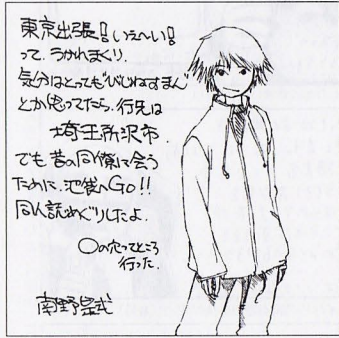 東京出張!いぇ〜い!
って、うかれまくり。
気分はとっても"びじねすまん"
とか思ってたら、行先は
埼玉所沢市。
でも昔の同僚に会う
ために、池袋へGo!!
同人誌めぐりしたよ。
〇の穴ってところ
行った。
南野